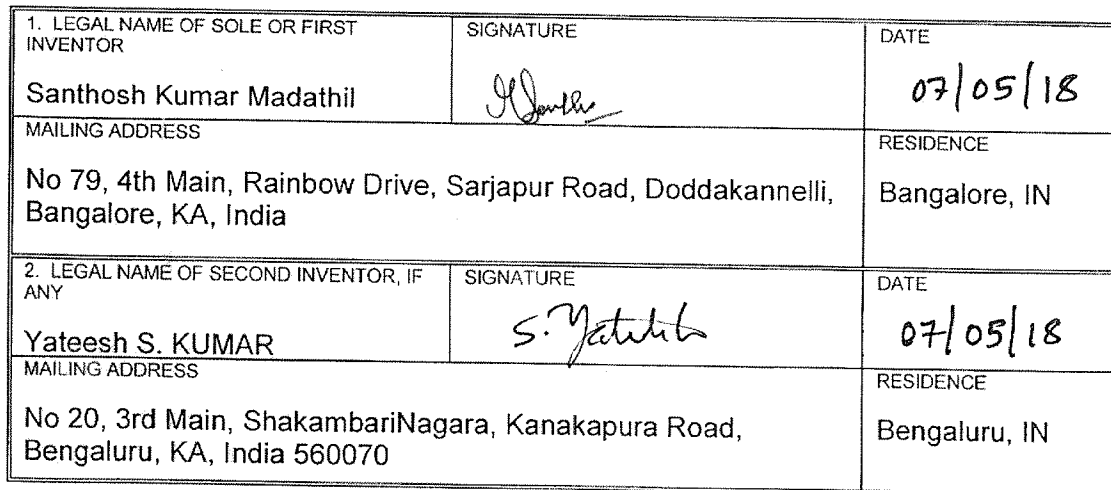 1. LEGAL NAME OF SOLE OR FIRST
INVENTOR
Santhosh Kumar Madathil
SIGNATURE
DATE
07/05/18
MAILING ADDRESS
No 79, 4th Main, Rainbow Drive, Sarjapur Road, Doddakannelli,
Bangalore, KA, India
RESIDENCE
Bangalore, IN
2. LEGAL NAME OF SECOND INVENTOR, IF
ANY
Yateesh S. KUMAR
SIGNATURE
S.
DATE
07/05/18
MAILING ADDRESS
No 20, 3rd Main, ShakambariNagara, Kanakapura Road,
Bengaluru, KA, India 560070
RESIDENCE
Bengaluru, IN